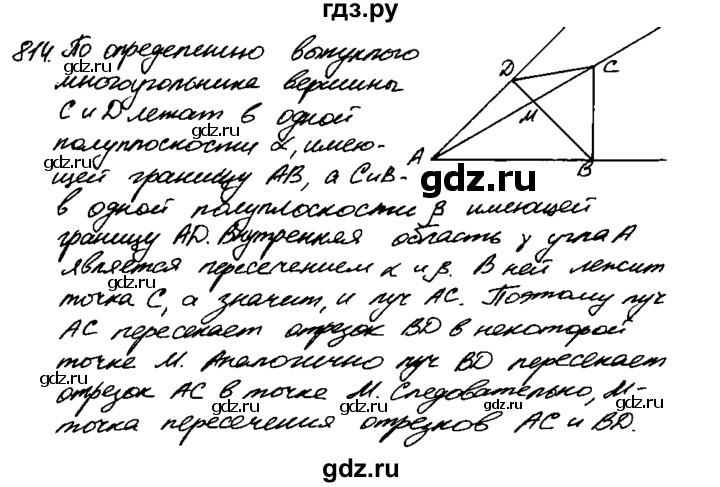 гдз.ру
814. По определению выпуклого
многоугольника вершины
С и D лежат в одной
полуплоскости α, имею-
щей границу АВ, а С и В -
в одной полуплоскости β имеющей
границу AD. Внутренняя область γ угла А
является пересечением α и β. В ней лежит
точка С, а значит, и луч АС. Поэтому луч
АС пересекает отрезок BD в некоторой
точке М. Аналогично луч BD пересекает
отрезок АС в точке М. Следовательно, М-
точка пересечения отрезков АС и BD.
A
B
C
D
M
gdz.ru
gdz.ru
gdz.ru
gdz.ru
gdz.ru
gdz.ru
gdz.ru
gdz.ru
gdz.ru
gdz.ru
gdz.ru
gdz.ru
gdz.ru
gdz.ru